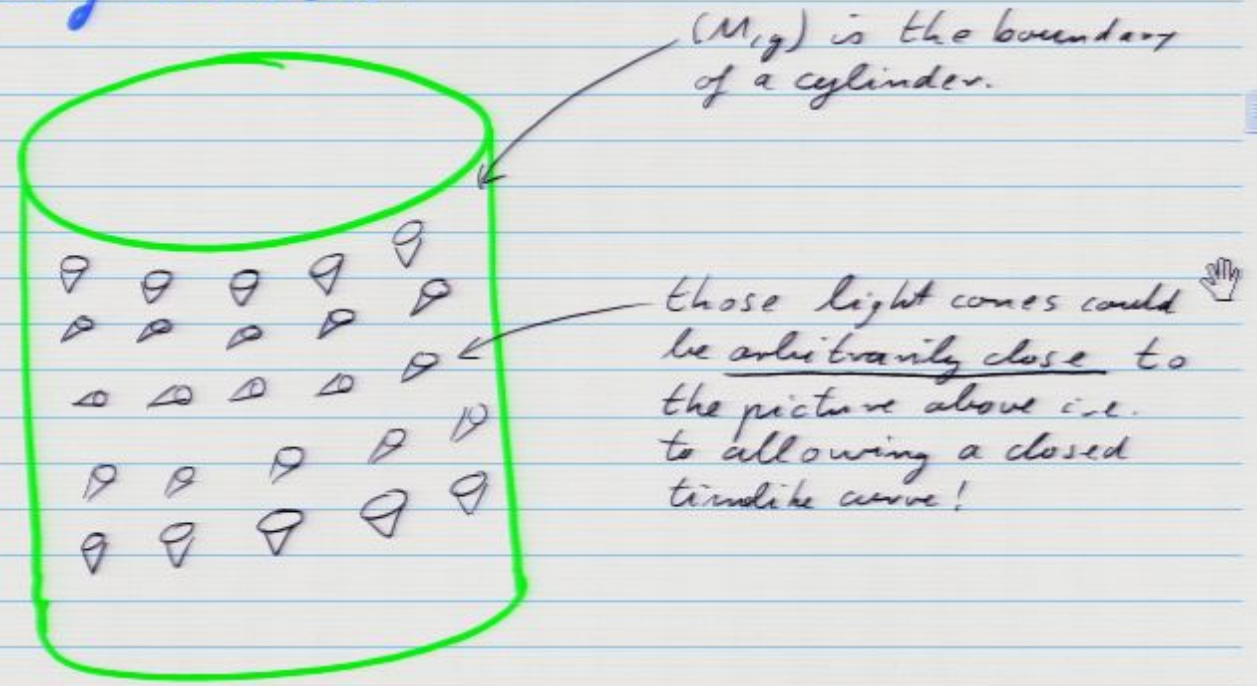 (M,g) is the boundary
of a cylinder.
those light cones could
be arbitrarily close to
the picture above i.e.
to allowing a closed
timelike curve!